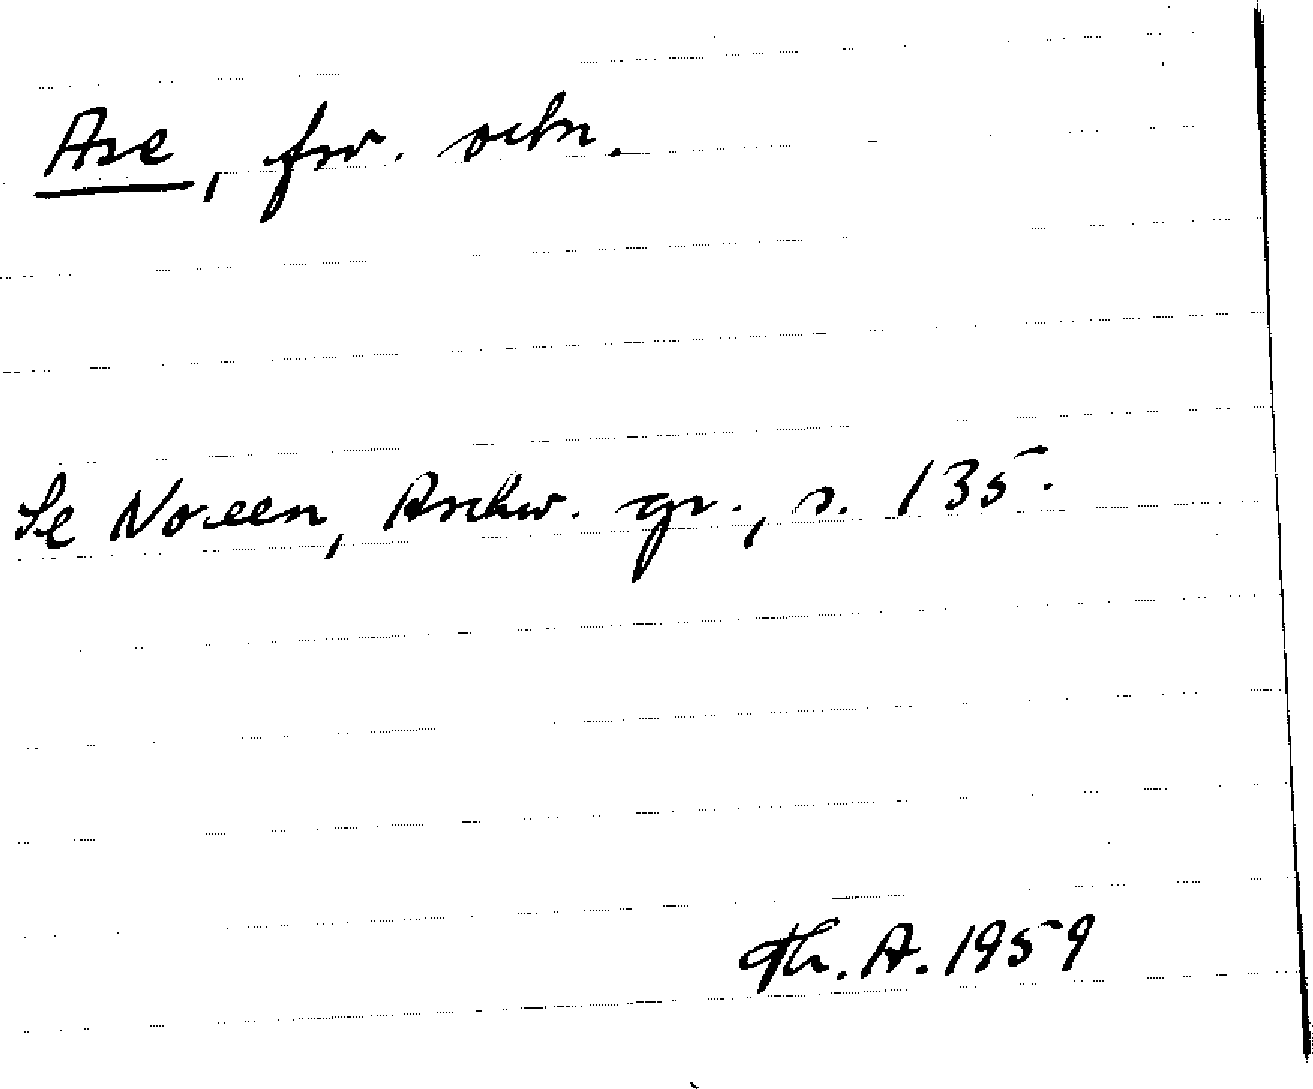 Ase, fsv. ortn.
Se Noreen, Aschw. gr., s. 135.
Th. A. 1959